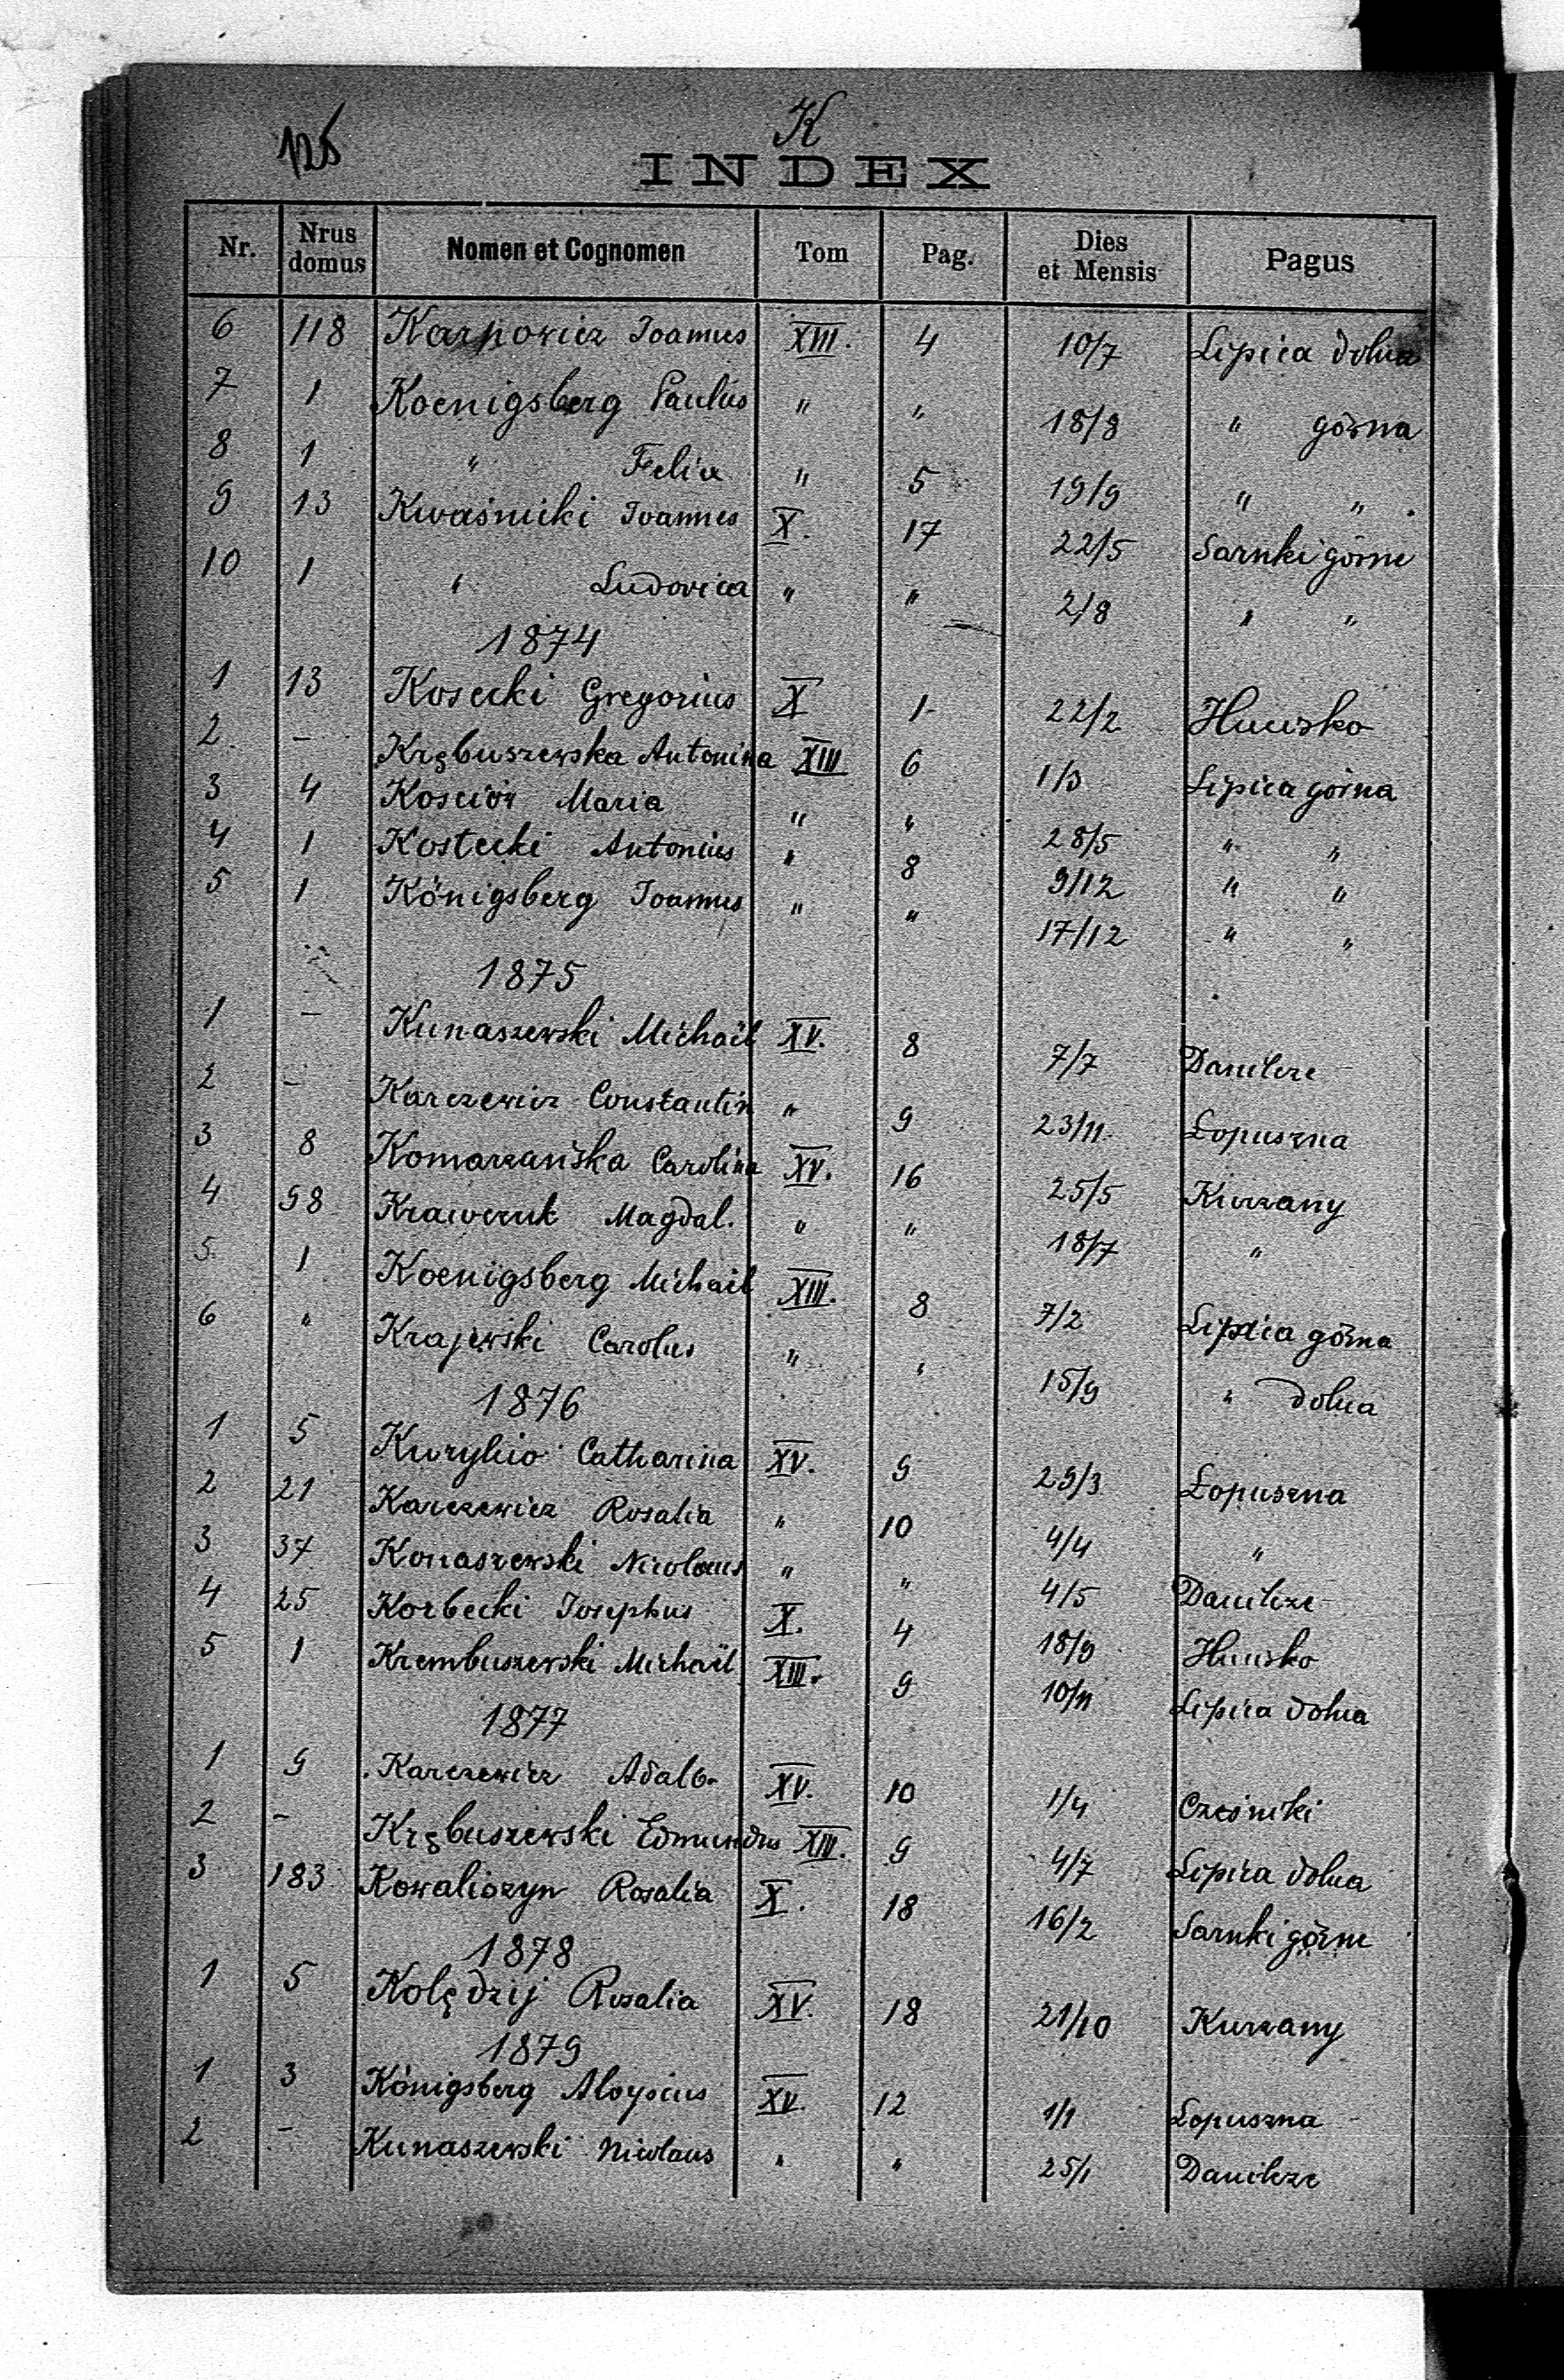 125
K
INDEX
Nr. Nrus domus Nomen et Cognomen Tom Pag. Dies et Mensis Pagus
6 118 Karpowicz Joannes XIII. 4 10/7 Lipica dolna
7 1 Koenigsberg Paulus " " 18/8 " górna
8 1 " Felix " 5 19/9 " "
9 13 Kwaśnicki Joannes X. 17 22/5 Sarnki górne
10 1 " Ludovica " " 2/8 " "
1874
1 13 Kosecki Gregorius X 1 22/2 Hucisko
2. – Krębuszewska Antonina XIII 6 1/3 Lipica górna
3 4 Kosciów Maria " " 28/5 " "
4 1 Kostecki Antonius " 8 9/12 " "
5 1 Königsberg Joannes " " 17/12 " "
1875
1 – Kunaszewski Michaël XV. 8 7/7 Danilcze
2 – Karczewicz Constantin " 9 23/11 Lopuszna
3 8 Komarzańska Carolina XV. 16 25/5 Kurzany
4 98 Krawczuk Magdal. " " 18/7 "
5. 1 Koenigsberg Michaël XIII. 8 7/2 Lipica górna
6 " Krajewski Carolus " " 15/9 " dolna
1876
1 5 Kuryłło Catharina XV. 9 29/3 Lopuszna
2 21 Karczewicz Rosalia " 10 4/4 "
3 37 Konaszewski Nicolaus " " 4/5 Danilcze
4 25 Korbecki Josephus X. 4 18/9 Hucisko
5 1 Krembuszewski Michaël XIII. 9 10/11 Lipica dolna
1877
1 9 Karczewicz Adalb. XV. 10 1/4 Cześniki
2 – Krębuszewski Edmundus XIII. 9 4/7 Lipica dolna
3 183 Kowaliszyn Rosalia X. 18 16/2 Sarnki górne
1878
1 5 Kolędzij Rosalia XV. 18 21/10 Kurzany
1879
1 3 Königsberg Aloysius XV. 12 1/1 Lopuszna
2 – Kunaszewski Nicolaus " " 25/1 Danilcze